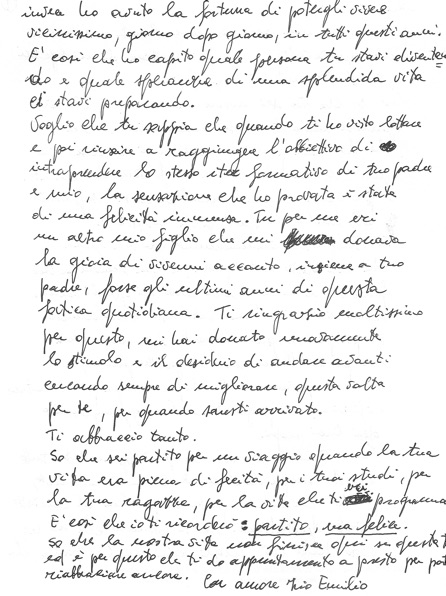 invece ho avuto la fortuna di potergli vivere
vicinissimo, giorno dopo giorno, in tutti questi anni.
E' così che ho capito quale persona tu stavi diventen
do e quale splendida vita
ti stavi preparando.
Voglio che tu sappia che quando ti ho visto lottare
e poi riuscire a raggiungere l'obiettivo di
intraprendere lo stesso iter formativo di tuo padre
e mio, la sensazione che ho provato è stata
di una felicità immensa. Tu per me eri
un altro mio figlio che mi donava
la gioia di vivermi accanto, insieme a tuo
padre, forse gli ultimi anni di questa
fatica quotidiana. Ti ringrazio moltissimo
per questo, mi hai donato nuovamente
lo stimolo e il desiderio di andare avanti
cercando sempre di migliorare, questa volta
per te, per quando saresti arrivato.
Ti abbraccio tanto.
So che sei partito per un viaggio quando la tua
vita era piena di felicità, per i tuoi studi, per
la tua ragazza, per la vita che ti eri programma
E' così che io ti ricorderò: partito, ma felice.
So che la nostra vita non finisce qui su questa t
ed è per questo che ti do appuntamento a presto per pot
riabbracciare ancora. Con amore zio Emilio